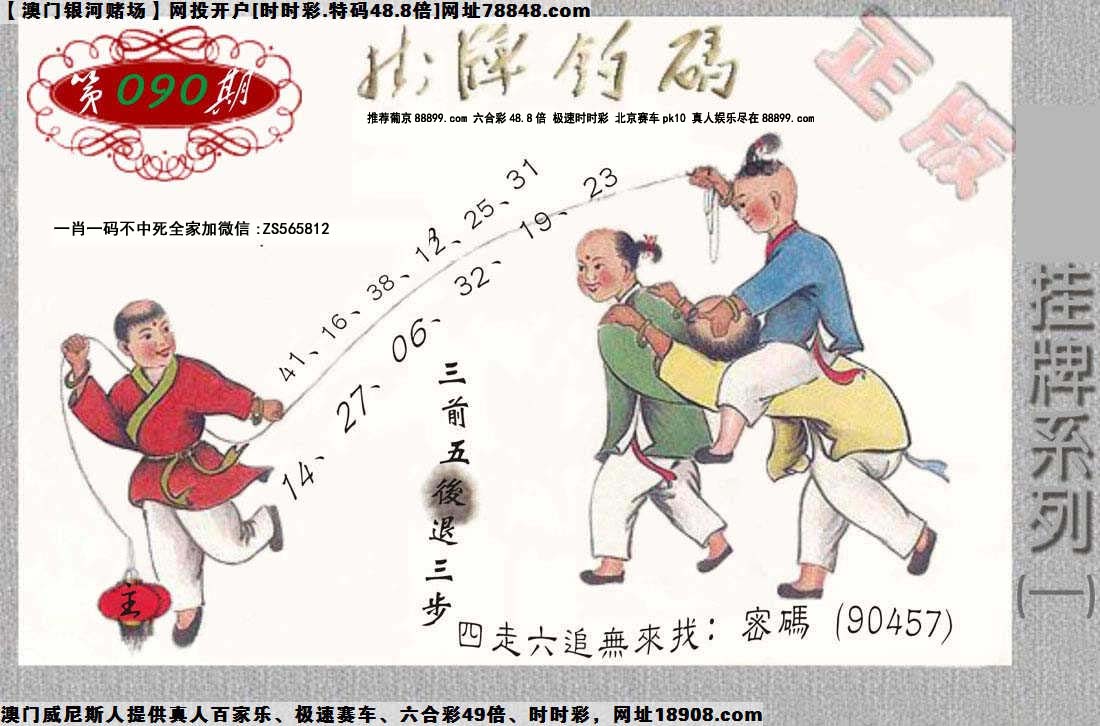 【澳门银河赌场】网投开户[时时彩.特码48.8倍]网址78848.com
第090期
挂牌钓码
正版
推荐葡京88899.com 六合彩48.8倍 极速时时彩 北京赛车pk10 真人娱乐尽在88899.com
一肖一码不中死全家加微信:ZS565812
41、16、38、12、25、31
14、27、06、32、19、23
三前五後退三步
主
四走六追無來找：密碼(90457)
挂牌系列(一)
澳门威尼斯人提供真人百家乐、极速赛车、六合彩49倍、时时彩，网址18908.com